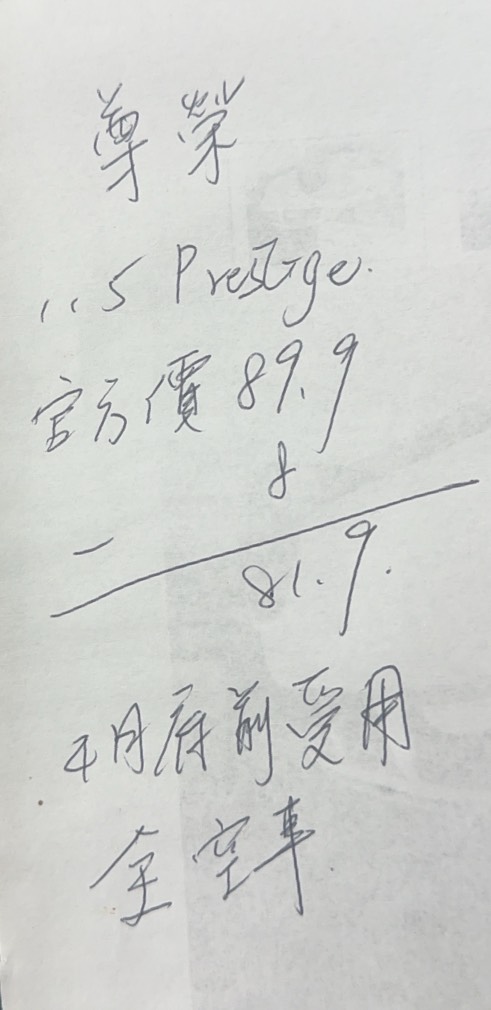 尊榮
1.5 Prestige.
官方價 89.9
8
—
81.9.
4月底前受用
全空車